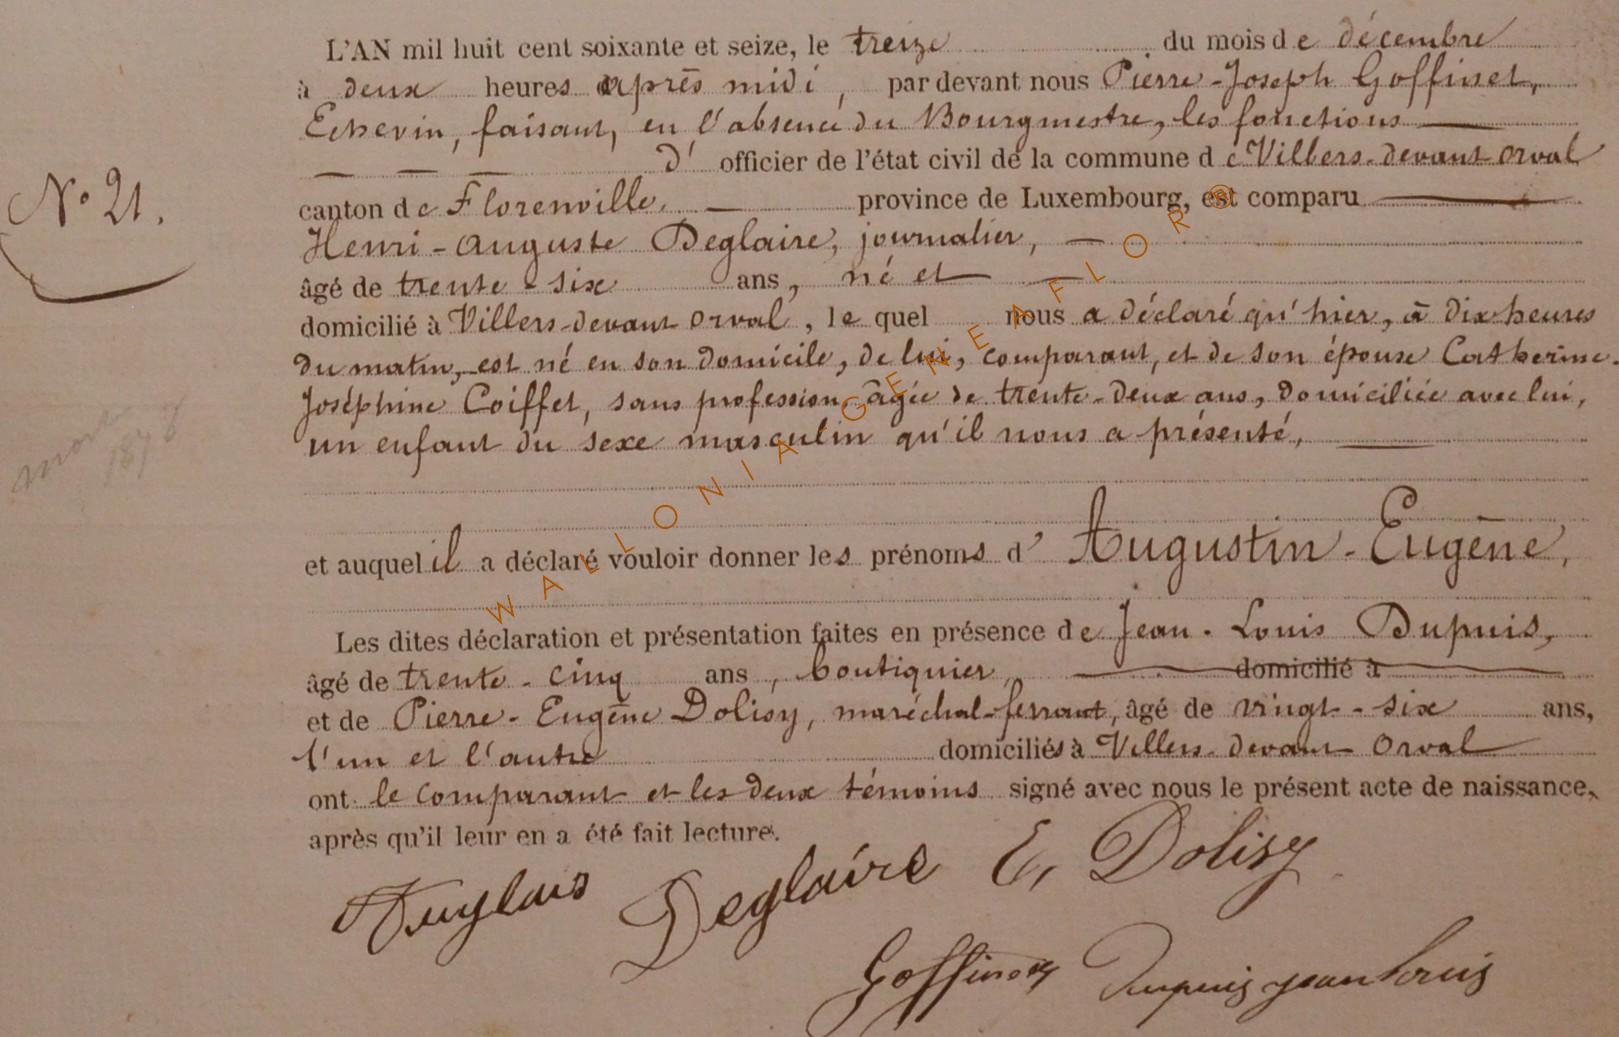 L'AN mil huit cent soixante et seize, le treize du mois de décembre
à deux heures après midi, par devant nous Pierre-Joseph Goffinet,
Echevin, faisant, en l'absence du Bourgmestre, les fonctions
d' officier de l'état civil de la commune de Villers-devant orval
canton de Florenville. province de Luxembourg, est comparu
N° 21.
Henri-auguste Deglaire, journalier,
âgé de trente-six ans, né et
domicilié à Villers-devant orval, le quel nous a déclaré qu'hier, à dix heures
du matin, est né en son domicile, de lui, comparant, et de son épouse Catherine-
Joséphine Coiffet, sans profession, âgée de trente-deux ans, domiciliée avec lui,
un enfant du sexe masculin qu'il nous a présenté,
mort
1878
et auquel il a déclaré vouloir donner les prénoms d' Augustin-Eugène,
Les dites déclaration et présentation faites en présence de Jean-Louis Dupuis,
âgé de trente-cinq ans, boutiquier, domicilié à
et de Pierre-Eugène Dolisy, maréchal-ferrant, âgé de vingt-six ans,
l'un et l'autre domiciliés à Villers-devant orval
ont le comparant et les deux témoins signé avec nous le présent acte de naissance,
après qu'il leur en a été fait lecture.
Deglaire E, Dolisy
Goffinet Dupuis jean Louis
WALLONIA GENEAFLOR ®